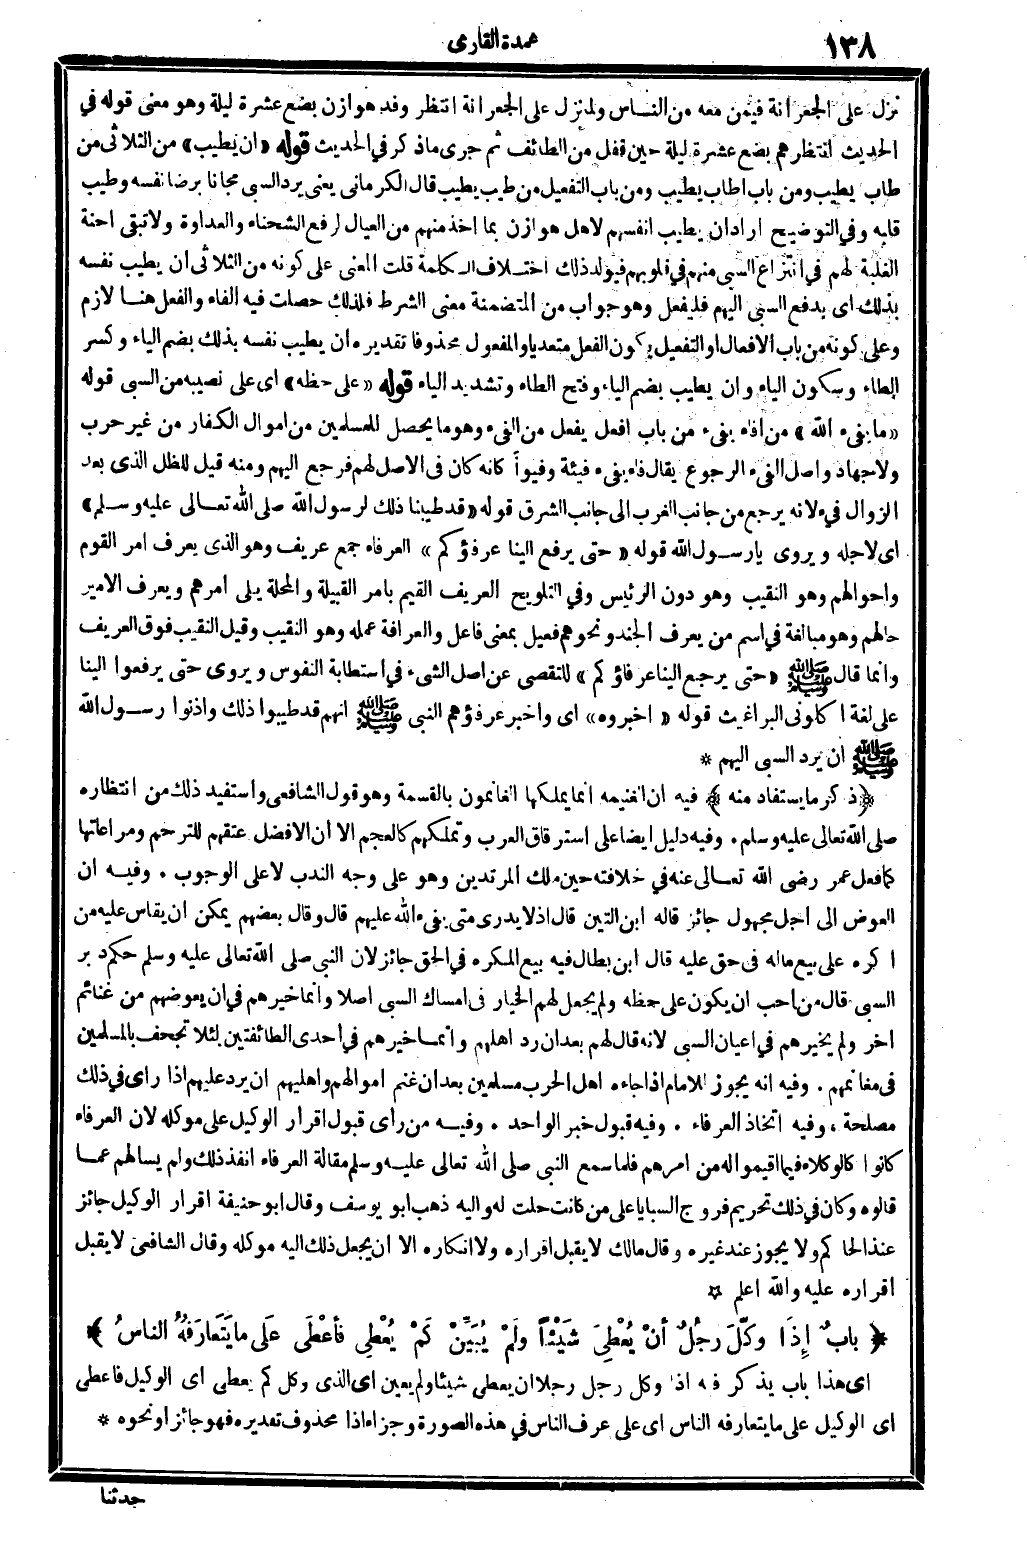 ١٣٨
عمدة القارى
نزل على الجعرانة فيمن معه من الناس ولمنزل على الجعرانة انتظر وفد هوازن بضع عشرة ليلة وهو معنى قوله فى
الحديث انتظرهم بضع عشرة ليلة حين قفل من الطائف ثم جرى ماذكر فى الحديث قوله «ان يطيب» من الثلاثى من
طاب يطيب ومن باب اطاب يطيب ومن باب التفعيل من طيب يطيب قال الكرمانى يعنى يرد السبى مجانا برضا نفسه وطيب
قلبه وفى التوضيح ارادان يطيب انفسهم لاهل هوازن بما اخذ منهم من العيال لرفع الشحناء والعداوة ولا تبقى احنة
الغلبة لهم فى انتزاع السبى منهم فى قلوبهم فيولد ذلك اختلاف الكلمة قلت المعنى على كونه من الثلاثى أن يطيب نفسه
بذلك اى يدفع السبى اليهم فليفعل وهو جواب من المتضمنة معنى الشرط فلذلك حصلت فيه الفاء والفعل هنا لازم
وعلى كونه من باب الافعال او التفعيل يكون الفعل متعديا والمفعول محذوفا تقديره ان يطيب نفسه بذلك بضم الياء وكسر
الطاء وسكون الياء وان يطيب بضم الياء وفتح الطاء وتشديد الياء قوله «على حظه» اى على نصيبه من السبى قوله
«مايفىء الله» من افاء يفىء من باب افعل يفعل من الفىء وهو ما يحصل للمسلمين من اموال الكفار من غير حرب
ولا جهاد واصل الفىء الرجوع يقال فاء يفىء فيئة وفيوأ كانه كان فى الاصل لهم فرجع اليهم ومنه قيل للظل الذى بعد
الزوال فىء لانه يرجع من جانب الغرب الى جانب الشرق قوله «قد طيبنا ذلك لرسول الله صلى الله تعالى عليه وسلم»
اى لاجله ويروى يارسول الله قوله «حتى يرفع الينا عرفؤكم» العرفاء جمع عريف وهو الذى يعرف امر القوم
واحوالهم وهو النقيب وهو دون الرئيس وفى التلويح العريف القيم بامر القبيلة والمحلة يلى امرهم ويعرف الامير
حالهم وهو مبالغة فى اسم من يعرف الجند ونحوهم فعيل بمعنى فاعل والعرافة عمله وهو النقيب وقيل النقيب فوق العريف
وانما قال ﷺ «حتى يرجع الينا عرفاؤكم» للتقصى عن اصل الشىء فى استطابة النفوس ويروى حتى يرفعوا الينا
على لغة اكلونى البراغيث قوله «اخبروه» اى واخبر عرفؤهم النبى ﷺ انهم قد طيبوا ذلك واذنوا رسول الله
ﷺ ان يرد السبى اليهم *
﴿ذكر مايستفاد منه﴾ فيه ان الغنيمه انما يملكها الغانمون بالقسمة وهو قول الشافعى واستفيد ذلك من انتظاره
صلى الله تعالى عليه وسلم. وفيه دليل ايضا على استرقاق العرب وتملكهم كالعجم الا ان الافضل عتقهم للترحم ومراعاتها
كما فعل عمر رضى الله تعالى عنه فى خلافته حين ملك المرتدين وهو على وجه الندب لا على الوجوب. وفيه ان
العوض الى اجل مجهول جائز قاله ابن التين قال اذ لا يدرى متى يفىء الله عليهم قال وقال بعضهم يمكن ان يقاس عليه من
اكره على بيع ماله فى حق عليه قال ابن بطال فيه بيع المكره فى الحق جائز لان النبى صلى الله تعالى عليه وسلم حكم برد
السبى قال من احب ان يكون على حظه ولم يجعل لهم الخيار فى امساك السبى اصلا وانما خيرهم فى ان يعوضهم من غنائم
اخر ولم يخيرهم فى اعيان السبى لانه قال لهم بعد ان رد اهلهم وانما خيرهم فى احدى الطائفتين لئلا تجحف بالمسلمين
فى مغانمهم. وفيه انه يجوز للامام اذا جاءه اهل الحرب مسلمين بعد ان غنم اموالهم واهليهم ان يرد عليهم اذا راى فى ذلك
مصلحة، وفيه اتخاذ العرفاء. وفيه قبول خبر الواحد. وفيه من رأى قبول اقرار الوكيل على موكله لان العرفاء
كانوا كالوكلاء فيما اقيموا له من امرهم فلما سمع النبى صلى الله تعالى عليه وسلم مقالة العرفاء انفذ ذلك ولم يسالهم عما
قالوه وكان فى ذلك تحريم فروج السبايا على من كانت حلت له واليه ذهب ابو يوسف وقال ابو حنيفة اقرار الوكيل جائز
عند الحاكم ولا يجوز عند غيره وقال مالك لا يقبل اقراره ولا انكاره الا ان يجعل ذلك اليه موكله وقال الشافعى لا يقبل
اقراره عليه والله اعلم ✡
﴿ بابٌ إِذَا وكَّلَ رجُلٌ أنْ يُعْطِىَ شَيْئاً ولَمْ يُبَيِّنْ كَمْ يُعْطِى فأعْطَى عَلَى مايَتَعَارَفهُ الناسُ ﴾
اى هذا باب يذكر فيه اذا وكل رجل رجلا ان يعطى شيئا ولم يعين اى الذى وكل كم يعطى اى الوكيل فاعطى
اى الوكيل على ما يتعارفه الناس اى على عرف الناس فى هذه الصورة وجزاء اذا محذوف تقديره فهو جائز او نحوه *
حدثنا